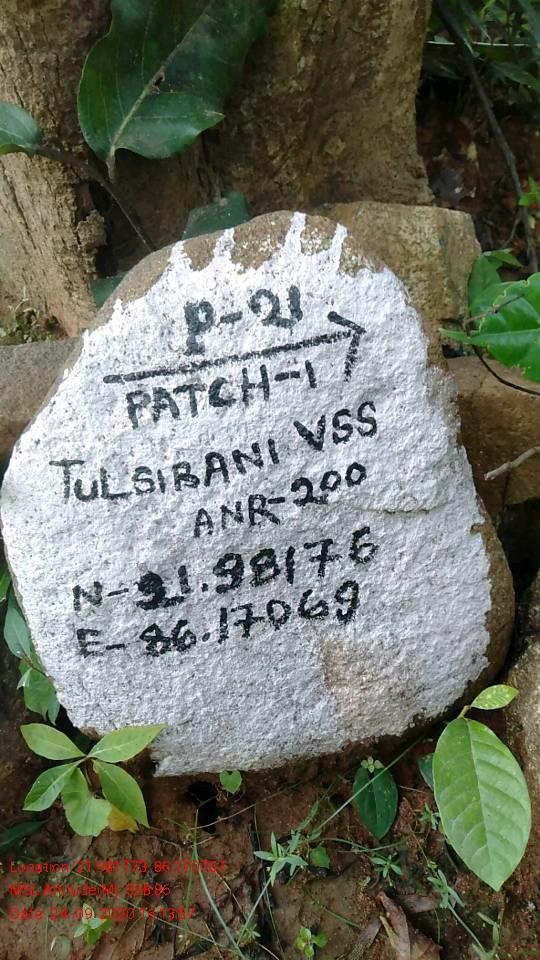 P-21
PATCH-1
TULSIBANI VSS
ANR-200
N-21.98176
E-86.17069
Location: 21.981773, 86.170737
MSL Altitude(M): 328.86
Date: 24-09-2020 15:13:57